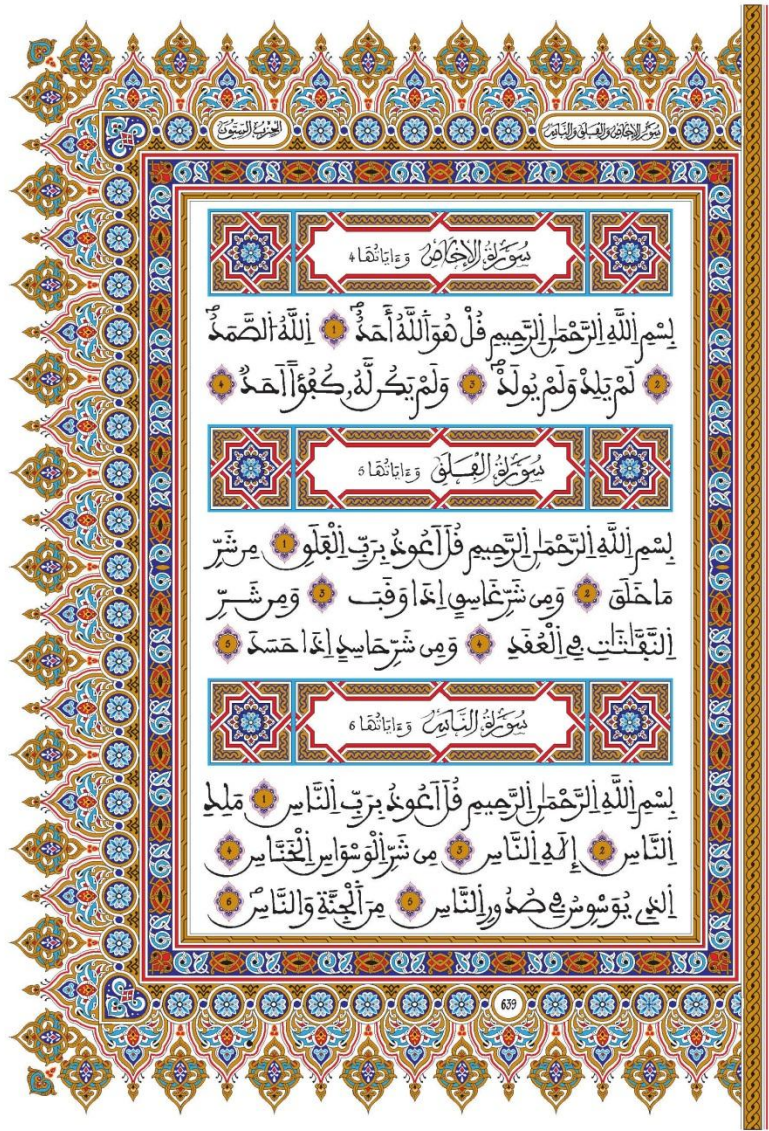 سُوَرُ الإِخْلَاصِ وَالْفَلَقِ وَالنَّاسِ
الحِزْبُ السِّتُّونَ
سُورَةُ الإِخْلَاصِ وَءَايَاتُهَا 4
بِسْمِ اِللَّهِ اِلرَّحْمَٰنِ اِلرَّحِيمِ قُلْ هُوَ اَللَّهُ أَحَدٌ 1 اِللَّهُ اُلصَّمَدُ
2 لَمْ يَلِدْ وَلَمْ يُولَدْ 3 وَلَمْ يَكُن لَّهُۥ كُفُؤاً اَحَدٌ 4
سُورَةُ الْفَلَقِ وَءَايَاتُهَا 5
بِسْمِ اِللَّهِ اِلرَّحْمَٰنِ اِلرَّحِيمِ قُلَ اَعُوذُ بِرَبِّ اِلْفَلَقِ 1 مِن شَرِّ
مَا خَلَقَ 2 وَمِن شَرِّ غَاسِقٍ اِذَا وَقَبَ 3 وَمِن شَرِّ
اِلنَّفَّٰثَٰتِ فِي اِلْعُقَدِ 4 وَمِن شَرِّ حَاسِدٍ اِذَا حَسَدَ 5
سُورَةُ النَّاسِ وَءَايَاتُهَا 6
بِسْمِ اِللَّهِ اِلرَّحْمَٰنِ اِلرَّحِيمِ قُلَ اَعُوذُ بِرَبِّ اِلنَّاسِ 1 مَلِكِ
اِلنَّاسِ 2 إِلَٰهِ اِلنَّاسِ 3 مِن شَرِّ اِلْوَسْوَاسِ اِلْخَنَّاسِ 4
اِلذِي يُوَسْوِسُ فِي صُدُورِ اِلنَّاسِ 5 مِنَ اَلْجِنَّةِ وَالنَّاسِ 6
639